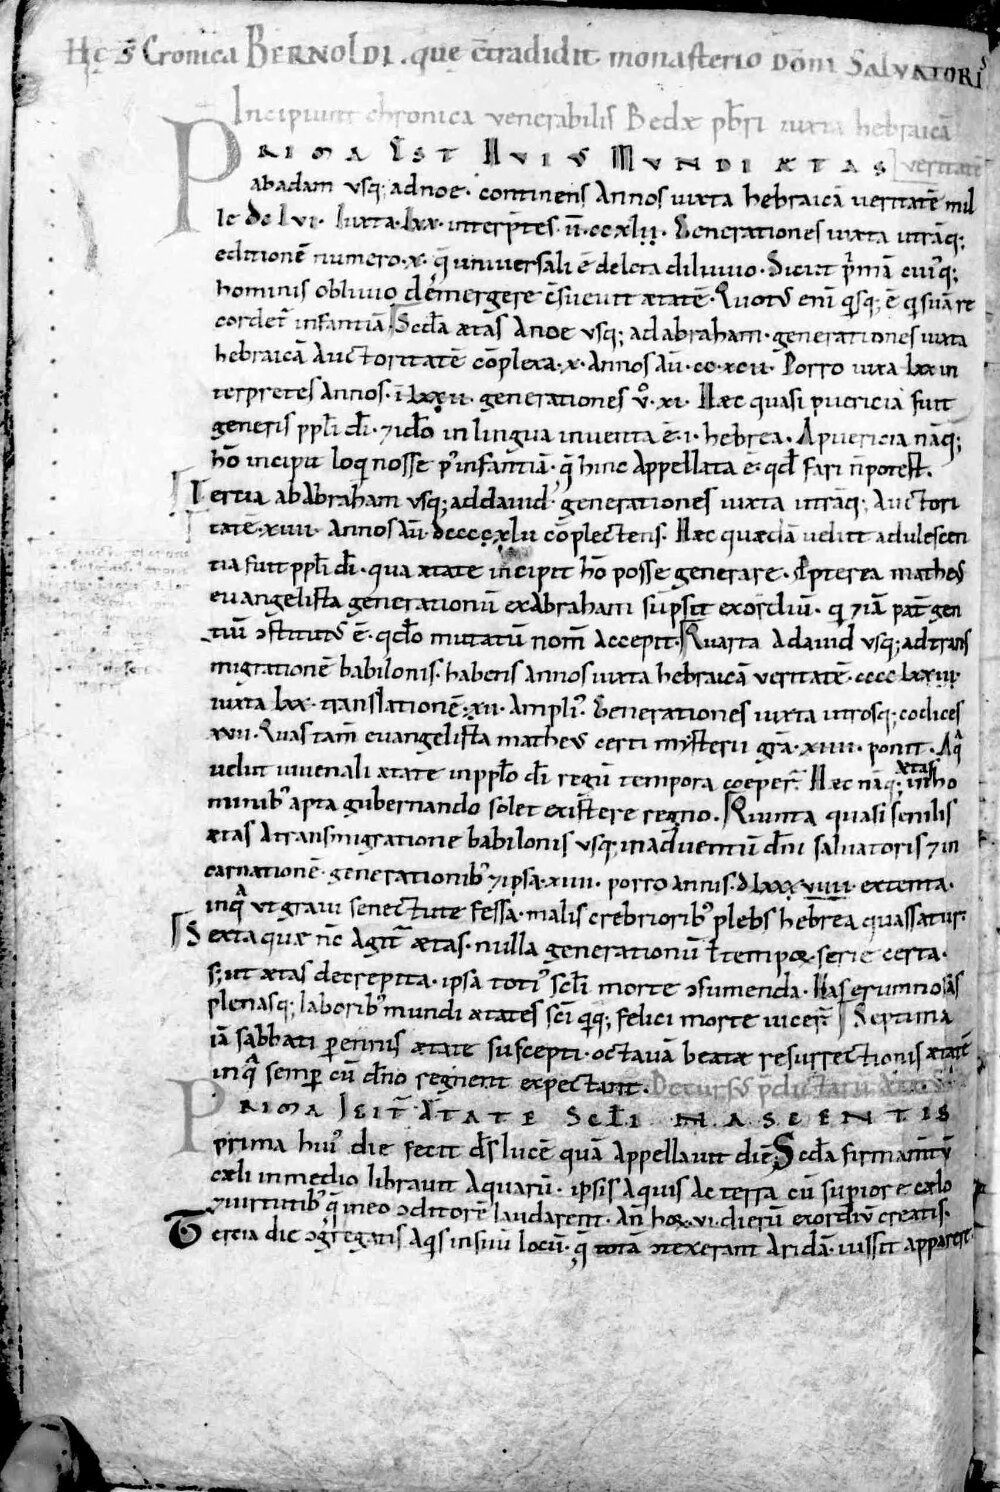 Hęc s̄ Cronica BERNOLDI. quę c̄tradidit monasterio Dōni SALVATORIS
Incipiunt chronica venerabilis Bedæ pb̄ri iuxta hebraicā
PRIMA EST HUIUS MUNDI ÆTAS veritatē
abadam usq; adnoe. continens Annos iuxta hebraicā veritatē mil
le dc lvi. Iuxta. lxx. interp̄tes. ii. cc xlii. Generationes iuxta utrāq;
editionē numero. x. q̄ universali ē deleta diluuio. Sicut p̄mā cuiꝰq;
hominis oblivio demergere c̄sueuit ætatē. Quotꝰ eni qisq; ē qi suā re
cordet̄ infantiā. Scd̄a ætas Anoe usq; adabraham. generationes iuxta
hebraicā Auctoritatē cōplexa. x. Annos aū. cc. xcii. Porro iuxta lxx in
terpretes Annos. ī lxxii. generationes v̊. xi. Hæc quasi puericia fuit
generis ppl̄i dī. ⁊ idō in lingua inventa ē. i. hebrea. Apuericia nāq;
hō incipit loqi nosse p̄ infantiā. q̄ hinc Appellata ē. qd̄ fari n̄ potest.
Tertia abAbraham usq; addauid generationes iuxta utrāq; Auctori
tatē. xiiii. Annos aū. dcccc xlii cōplectens. Hæc quædā velut adulescen
tia fuit ppl̄i dī. qua ætate incipit hō posse generare. Ꝓpterea matheꝰ
evangelista generationū exAbraham sūpsit exordiū. qi ⁊ iā pat̄ gen
tiū ↄstitutꝰ ē. qd̄o mutatū nom̄ accepit. Quarta Adavid usq; adtrans
migrationē babilonis. habens Annos iuxta hebraicā veritatē. cccc lxxiii.
iuxta lxx. translationē. xii. Ampliꝰ. Generationes iuxta utrosq; codices
xvii. Quas tam̄ evangelista matheꝰ certi mysterii grā. xiiii. ponit. Aq̄
velut iuvenali ætate inpplō dī regū tempora coeper̄. Hæc nāq; ætas inho
minibꝰ apta gubernando solet existere regno. Quinta quasi senilis
ætas Atransmigratione babilonis usq; inaduentū dn̄i salvatoris ⁊ in
carnationē. generationibꝰ ⁊ ipsa. xiiii. porro annis. dlxxxviiii. extenta.
inq̄ ut gravi senectute fessa. malis crebrioribꝰ plebs hebrea quassatur.
Sexta quæ nc̄ agit̄ ætas. nulla generationū ł tempoꝝ serie certa.
s; ut ætas decrepita. ipsa totiꝰ scl̄i morte ↄsumenda. Has erumnosas
plenasq; laboribꝰ mundi ætates scī qiq; felici morte vicer̄. Septima
iā sabbati ꝑennis ætate suscepti. octavā beatæ resurrectionis ætatē
inq̄ semꝑ cū dn̄o regnent expectant. Decursꝰ p̄dictarū ætatū
PRIMA IGIT̄ ÆTATE SCL̄I NASCENTIS
prima huiꝰ die fecit d̄s lucē quā Appellavit diē. Scd̄a firmam̄tū
cæli inmedio libravit Aquarū. ipsis Aquis Ac terra cū suꝑiore cælo
⁊ virtutibꝰ q̄ ineo ↄditorē laudarent. An̄ hoꝝ. vi. dierū exordiū creatis.
Tertia die ↄgregatis Aqis insuū locū. q̄ totā ↄtexerant Aridā. iussit apparere.